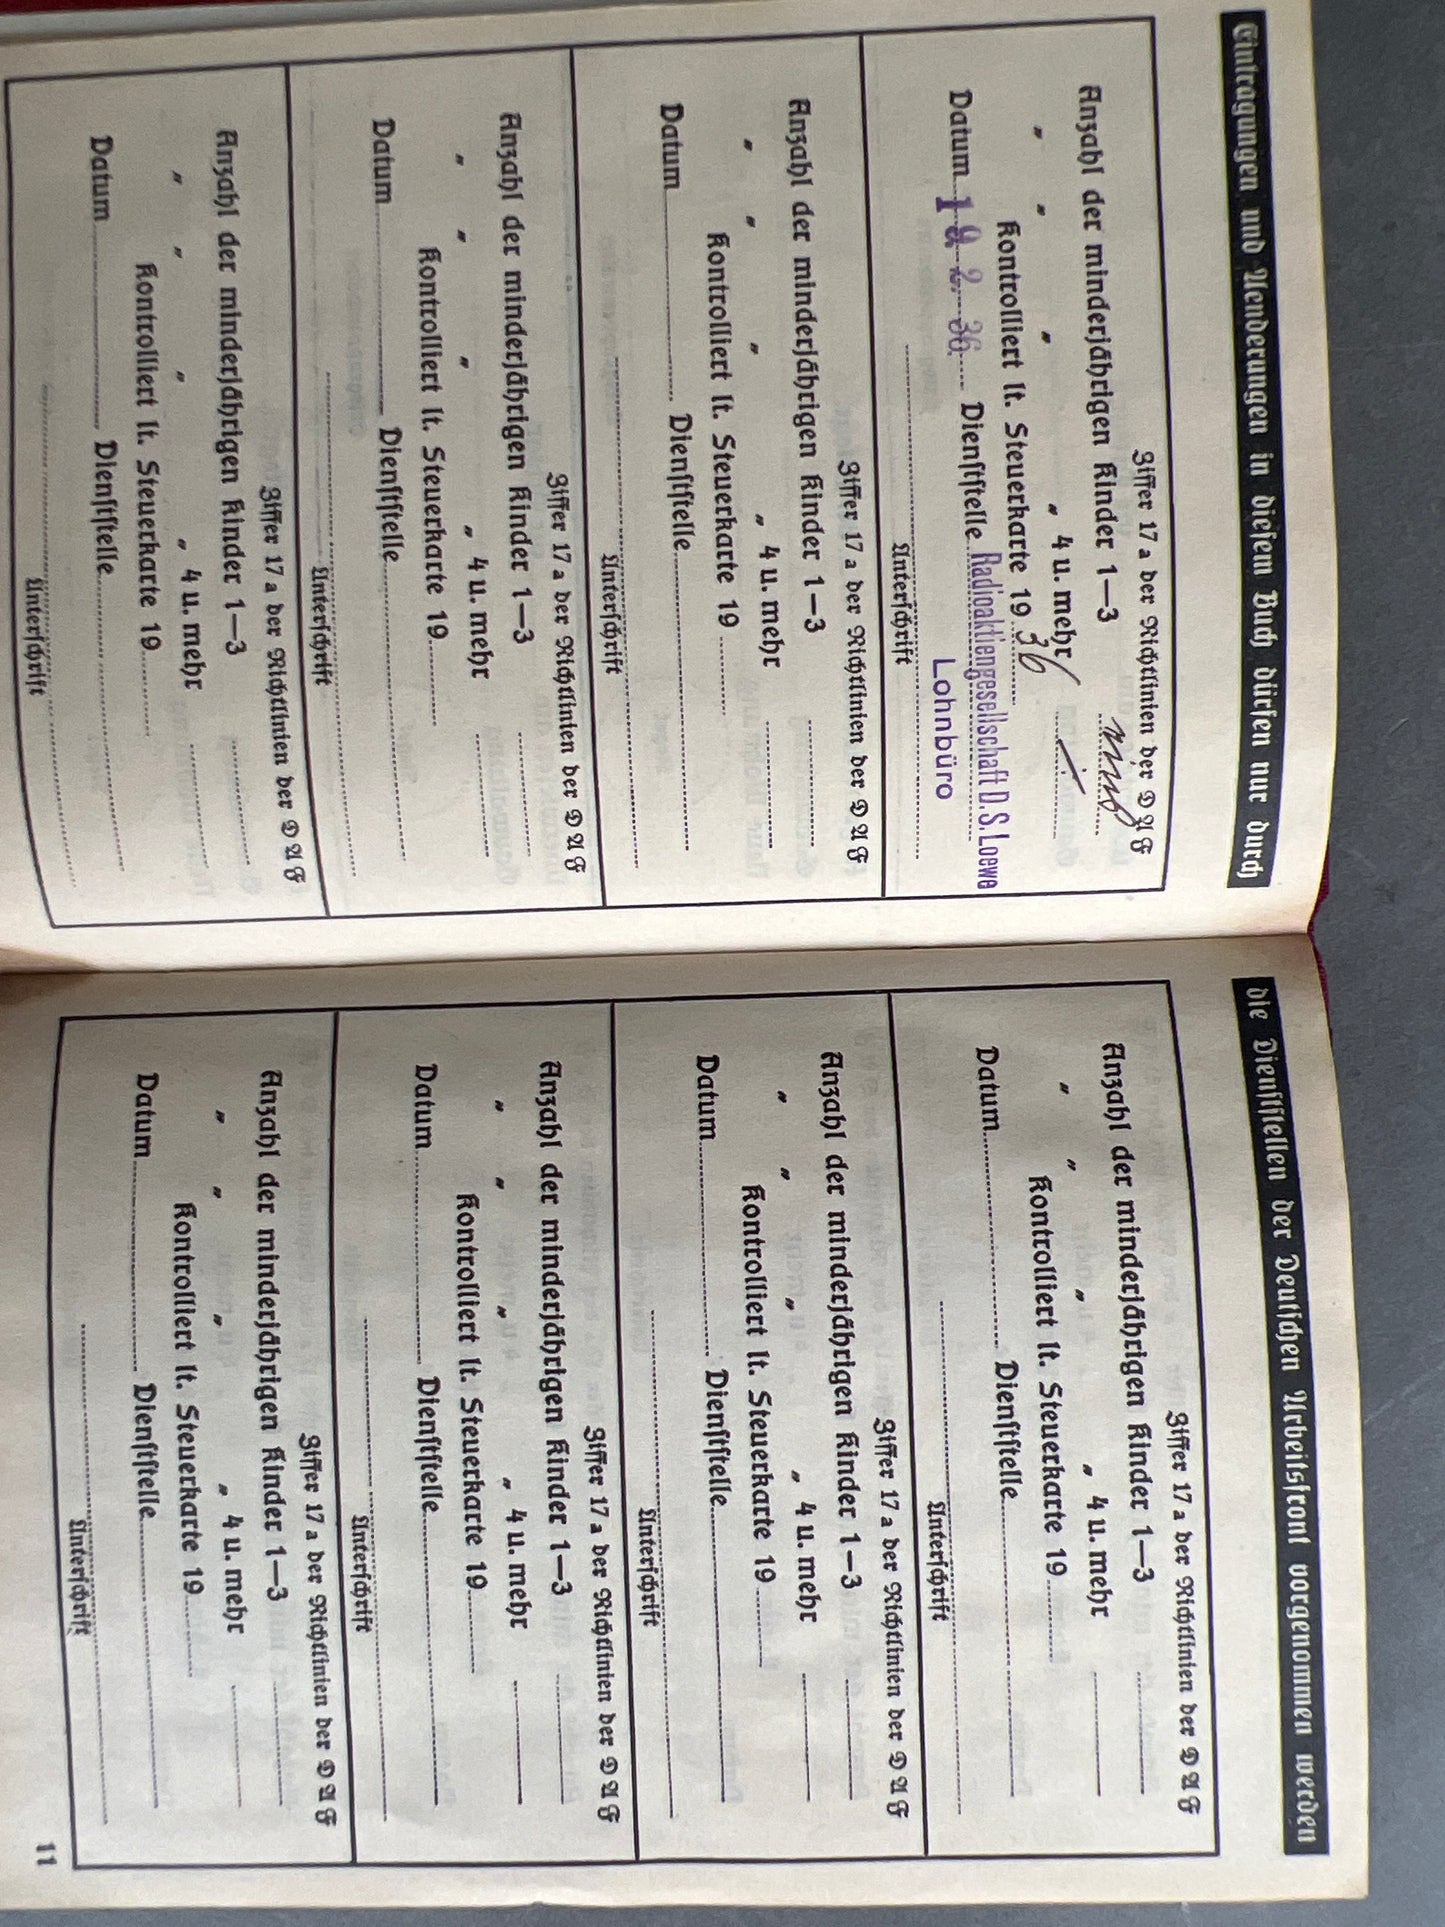 Eintragungen und Aenderungen in diesem Buch dürfen nur durch
Ziffer 17a der Richtlinien der D A F
Anzahl der minderjährigen Kinder 1—3
" " " " 4 u. mehr
Kontrolliert lt. Steuerkarte 19 36
Datum 19. 2. 36. Dienststelle Radioaktiengesellschaft D.S.Loewe
Lohnbüro
Unterschrift
Ziffer 17a der Richtlinien der D A F
Anzahl der minderjährigen Kinder 1—3
" " " " 4 u. mehr
Kontrolliert lt. Steuerkarte 19
Datum Dienststelle
Unterschrift
Ziffer 17a der Richtlinien der D A F
Anzahl der minderjährigen Kinder 1—3
" " " " 4 u. mehr
Kontrolliert lt. Steuerkarte 19
Datum Dienststelle
Unterschrift
Ziffer 17a der Richtlinien der D A F
Anzahl der minderjährigen Kinder 1—3
" " " " 4 u. mehr
Kontrolliert lt. Steuerkarte 19
Datum Dienststelle
Unterschrift
die Dienststellen der Deutschen Arbeitsfront vorgenommen werden
Ziffer 17a der Richtlinien der D A F
Anzahl der minderjährigen Kinder 1—3
" " " " 4 u. mehr
Kontrolliert lt. Steuerkarte 19
Datum Dienststelle
Unterschrift
Ziffer 17a der Richtlinien der D A F
Anzahl der minderjährigen Kinder 1—3
" " " " 4 u. mehr
Kontrolliert lt. Steuerkarte 19
Datum Dienststelle
Unterschrift
Ziffer 17a der Richtlinien der D A F
Anzahl der minderjährigen Kinder 1—3
" " " " 4 u. mehr
Kontrolliert lt. Steuerkarte 19
Datum Dienststelle
Unterschrift
Ziffer 17a der Richtlinien der D A F
Anzahl der minderjährigen Kinder 1—3
" " " " 4 u. mehr
Kontrolliert lt. Steuerkarte 19
Datum Dienststelle
Unterschrift
11